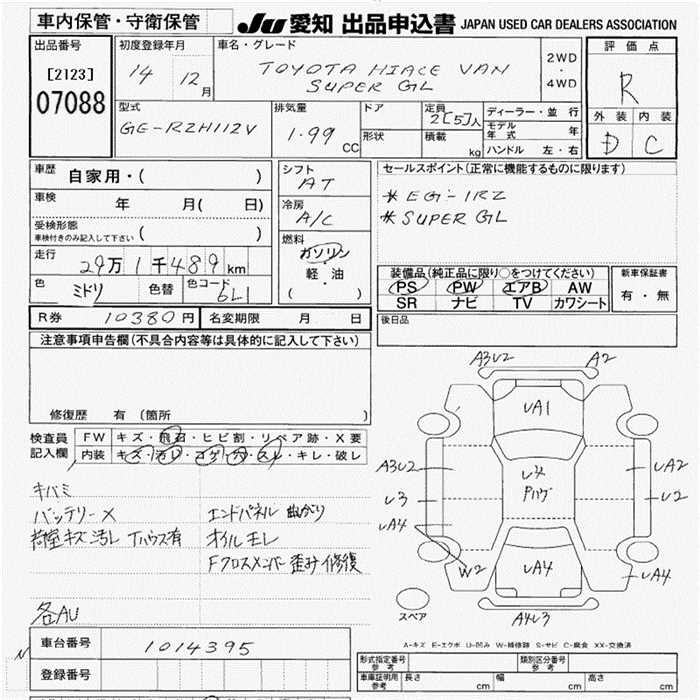 車内保管・守衛保管
JU 愛知 出品申込書 JAPAN USED CAR DEALERS ASSOCIATION
出品番号
[2123]
07088
初度登録年月
14 12月
車名・グレード
TOYOTA HIACE VAN
SUPER GL
2WD
・
4WD
評価点
R
外装 内装
D C
型式
GE-RZH112V
排気量
1.99 CC
ドア
形状
定員
2[5]人
積載 kg
ディーラー・並行
モデル年式 年
ハンドル 左・右
車歴 自家用・( )
車検 年 月( 日)
受検形態
車検付きのみ記入して下さい ( )
走行 29万1千489km
色 ミドリ 色替 色コード 6L1
シフト
AT
冷房
A/C
燃料
ガソリン
軽・油
( )
セールスポイント(正常に機能するものに限ります)
*EG-1RZ
*SUPER GL
装備品(純正品に限り○をつけてください)
PS PW エアB AW
SR ナビ TV カワシート
新車保証書
有・無
R券 10380円 名変期限 月 日
後日品
注意事項申告欄(不具合内容等は具体的に記入して下さい)
修復歴 有(箇所 )
検査員
記入欄
FW キズ・飛石・ヒビ割・リペア跡・X要
内装 キズ・汚レ・コゲ・穴・スレ・キレ・破レ
キバミ
バッテリーX
荷室キズ汚レ Tハウス有
エンドパネル曲がり
オイルモレ
Fクロスメンバー歪み修復
各AU
A3U2 A2
UA1
A3U2 UA2
U3 U2
UA4
W2 UA4 UA4
A4U3
スペア
A-キズ E-エクボ U-凹み W-補修跡 S-サビ C-腐食 XX-交換済
車台番号 1014395
登録番号
形式指定番号
参考
類別区分番号
参考
車庫証明用
参考
長さ cm 幅 cm 高さ cm